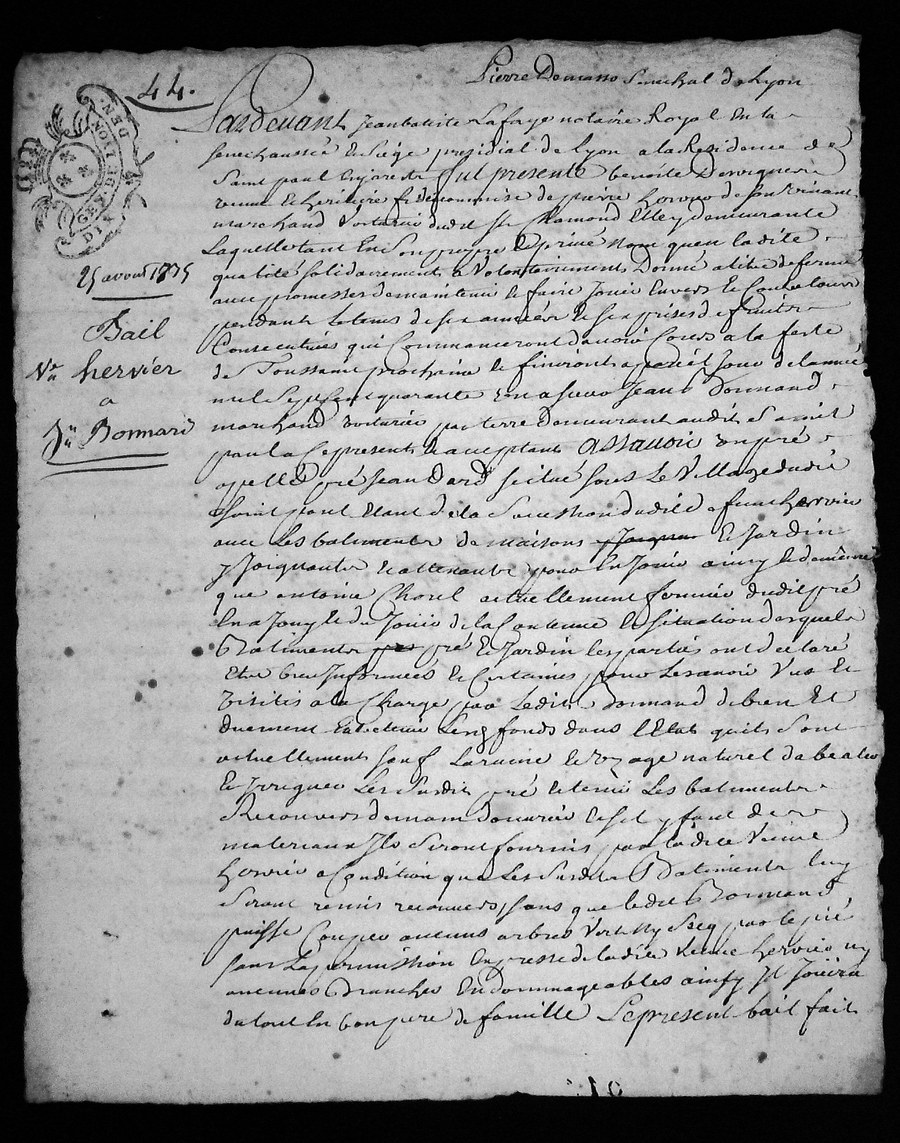 44.
Pierre Demasso Senechal de Lyon
GEN. DIVION. DEN.
25 avoust 1735
Bail
Ve hervier
a
Jn Bonnard
Pardevant Jeanbatiste Lafaye notaire Royal En la
Senechaussée Ensiége presidial de lyon ala Residence de
Saint paul Enjarest fut presente benoite
veuve Et héritiere de pierre hervier
marchand Voiturier dudit St Chamond Elley demeurante
Laquelle tant En Son propre Et privé nom quen ladite
qualité solidairement a Volontairement Donné atitre de ferme
avec promesses de maintenir Et faire Jouir Envers Et Contre tous
pendant le tems de six années Et six prises de fruits
Consecutives qui Commanceront davoir Cours a la feste
de Toussaint prochaine Et finiront apareil Jour de lannée
mil Sept Cent quarante un a sieur Jean Bonnard
marchand voiturier par terre demeurant audit Saint
paul la Cepresent Et acceptant Assavoir un pré
appellé pré Jean Dard scitué sous Le Village dudit
saint paul Etant de la Succession dudit defunt hervier
avec Les batiments de maisons Et Jardin
y Joignants Et attenants pour En Jouir ainsy Et de même
que antoine Chorel actuellement fermier dudit pré
En a Jouy Et du Jouir de la Contenue Et situation desquels
Batiments pré Et Jardin les parties ont declaré
Etre bien Informées Et Certaines pour Les avoir Vus Et
Visités a la Charge par Ledit Bonnard de bien Et
duement Entretenir Les fonds dans l'Etat quils Sont
actuellement sauf La ruine
Et Les Susdit pré Et tenir Les batiments
Recouverts de main douvrier Et s'il y faut de
materiaux Ils Seront fournis par ladite Veuve
hervier a Condition que Les Susdits Batiments luy
Seront remis recouverts sans que ledit Bonnard
puisse Couper aucuns arbres Verts Ny Secq par le pié
sans La permission Expresse de ladite Veuve hervier ny
aucunes Branches Endommageables ainsy Il Jouira
du tout En bon pere de famille Le present bail fait